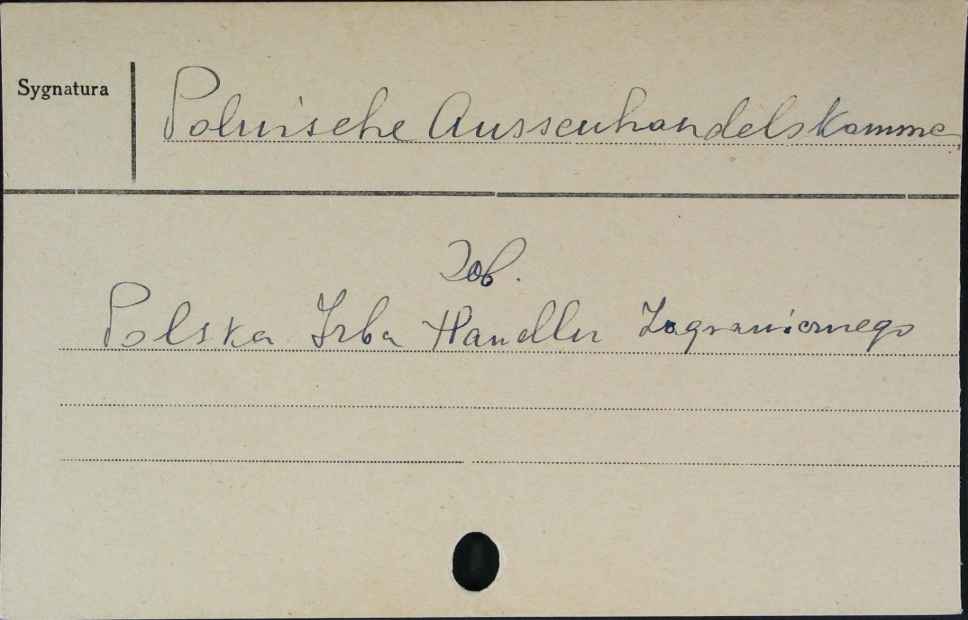 Sygnatura
Polnische Aussenhandelskamme
Zob.
Polska Izba Handlu Zagranicznego